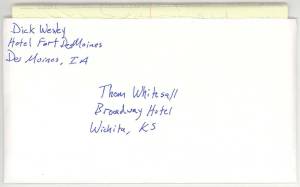 Dick Wesley
Hotel Fort DesMoines
Des Moines, IA
Thom Whitesall
Broadway Hotel
Wichita, KS